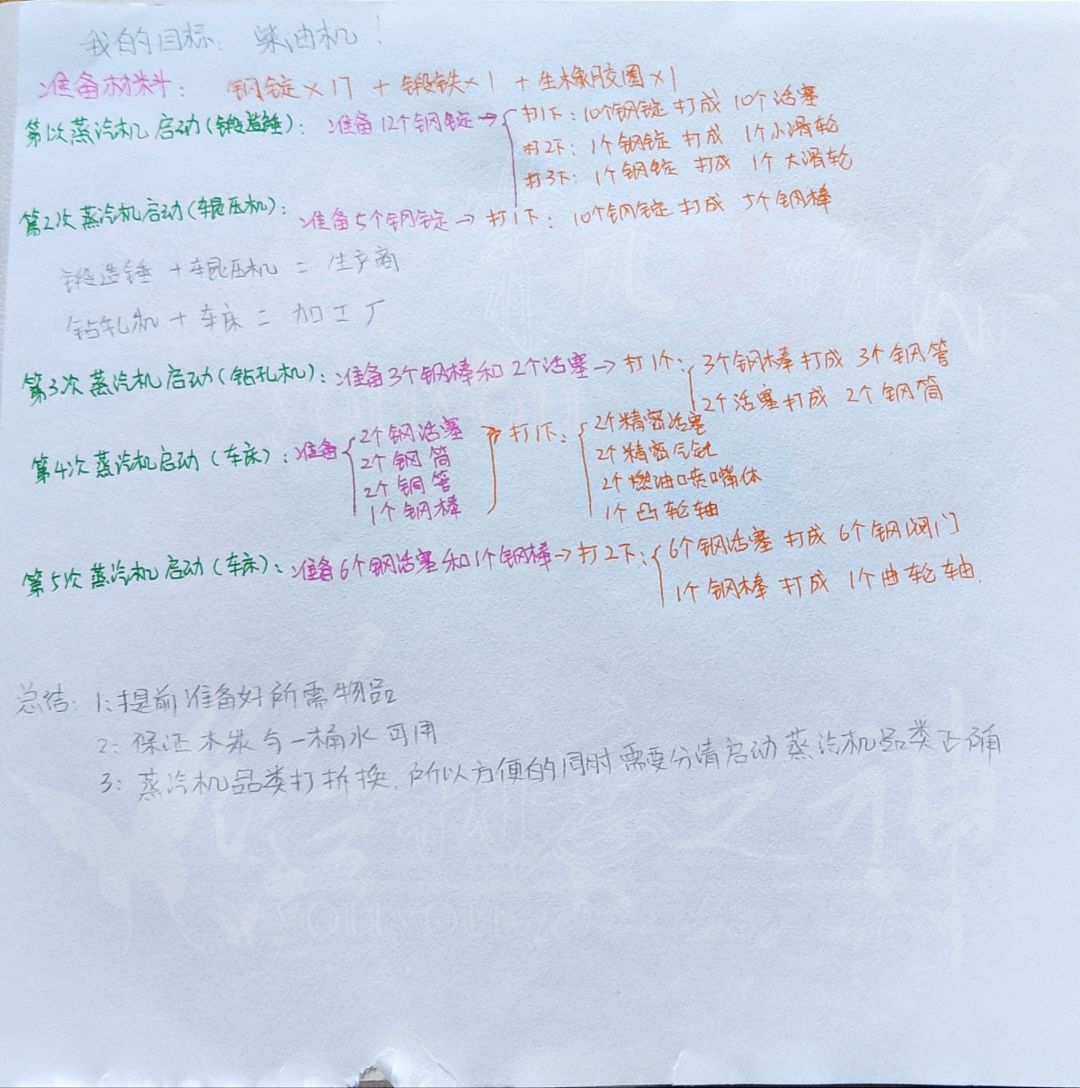 我的目标：柴油机！
准备材料： 钢锭×17 + 锻铁×1 + 生橡胶圈×1
第1次蒸汽机启动(锻造锤)：准备12个钢锭→
打1下：10个钢锭打成10个活塞
打2下：1个钢锭打成1个小滑轮
打3下：1个钢锭打成1个大滑轮
第2次蒸汽机启动(辊压机)：准备5个钢锭→打1下：10个钢锭打成5个钢棒
锻造锤+辊压机=生产商
钻轧机+车床=加工厂
第3次蒸汽机启动(钻孔机)：准备3个钢棒和2个活塞→打1个：
3个钢棒打成3个钢管
2个活塞打成2个钢筒
第4次蒸汽机启动(车床)：准备
2个钢活塞
2个钢筒
2个钢管
1个钢棒
→打1下：
2个精密活塞
2个精密汽缸
2个燃油喷嘴体
1个凸轮轴
第5次蒸汽机启动(车床)：准备6个钢活塞和1个钢棒→打2下：
6个钢活塞打成6个钢阀门
1个钢棒打成1个曲轮轴.
总结：1：提前准备好所需物品
2：保证木炭与一桶水可用
3：蒸汽机品类打折换，所以方便的同时需要分清启动蒸汽机品类正确
youyou
youyou